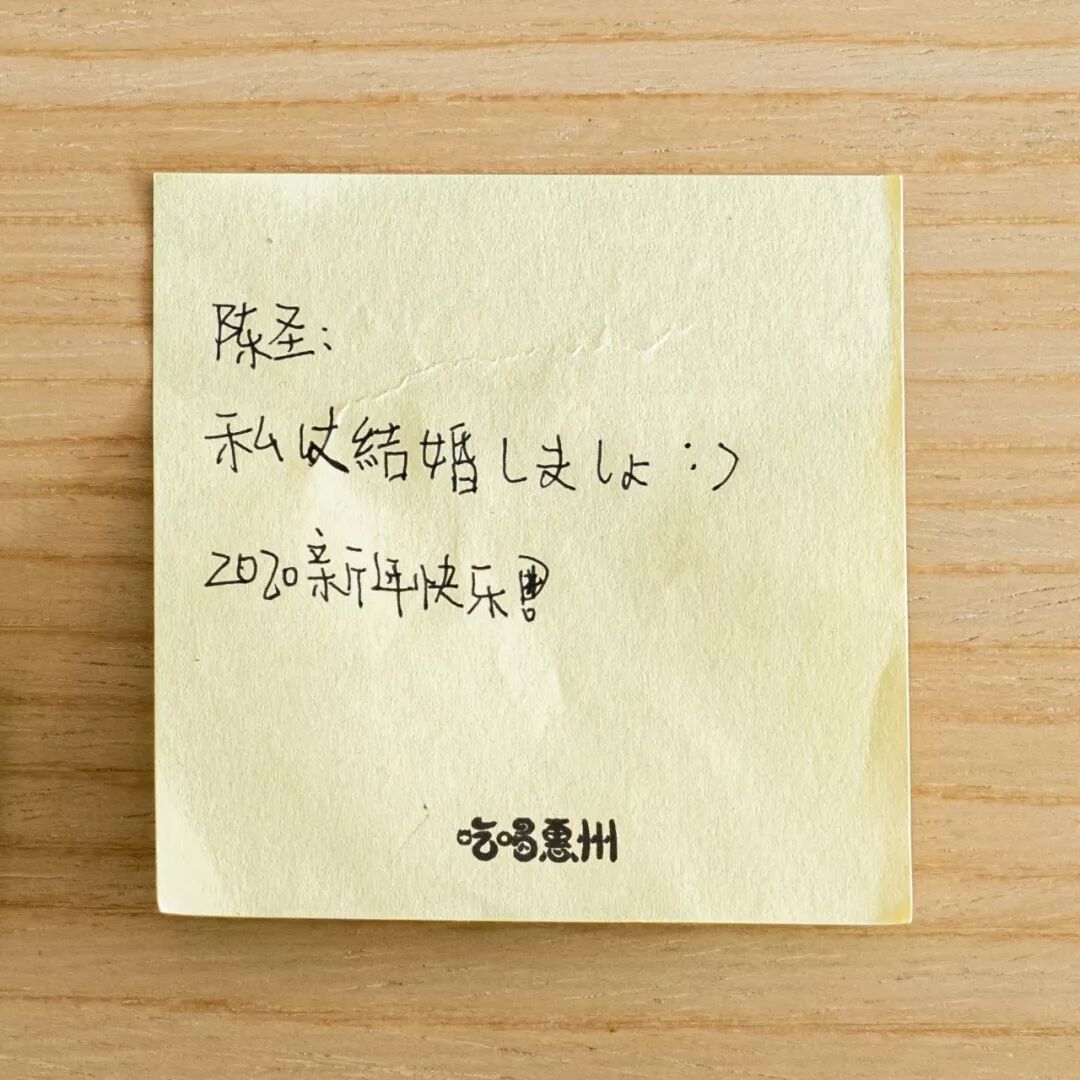 陈圣:
私は結婚しましょ :)
2020新年快乐!!
吃喝惠州